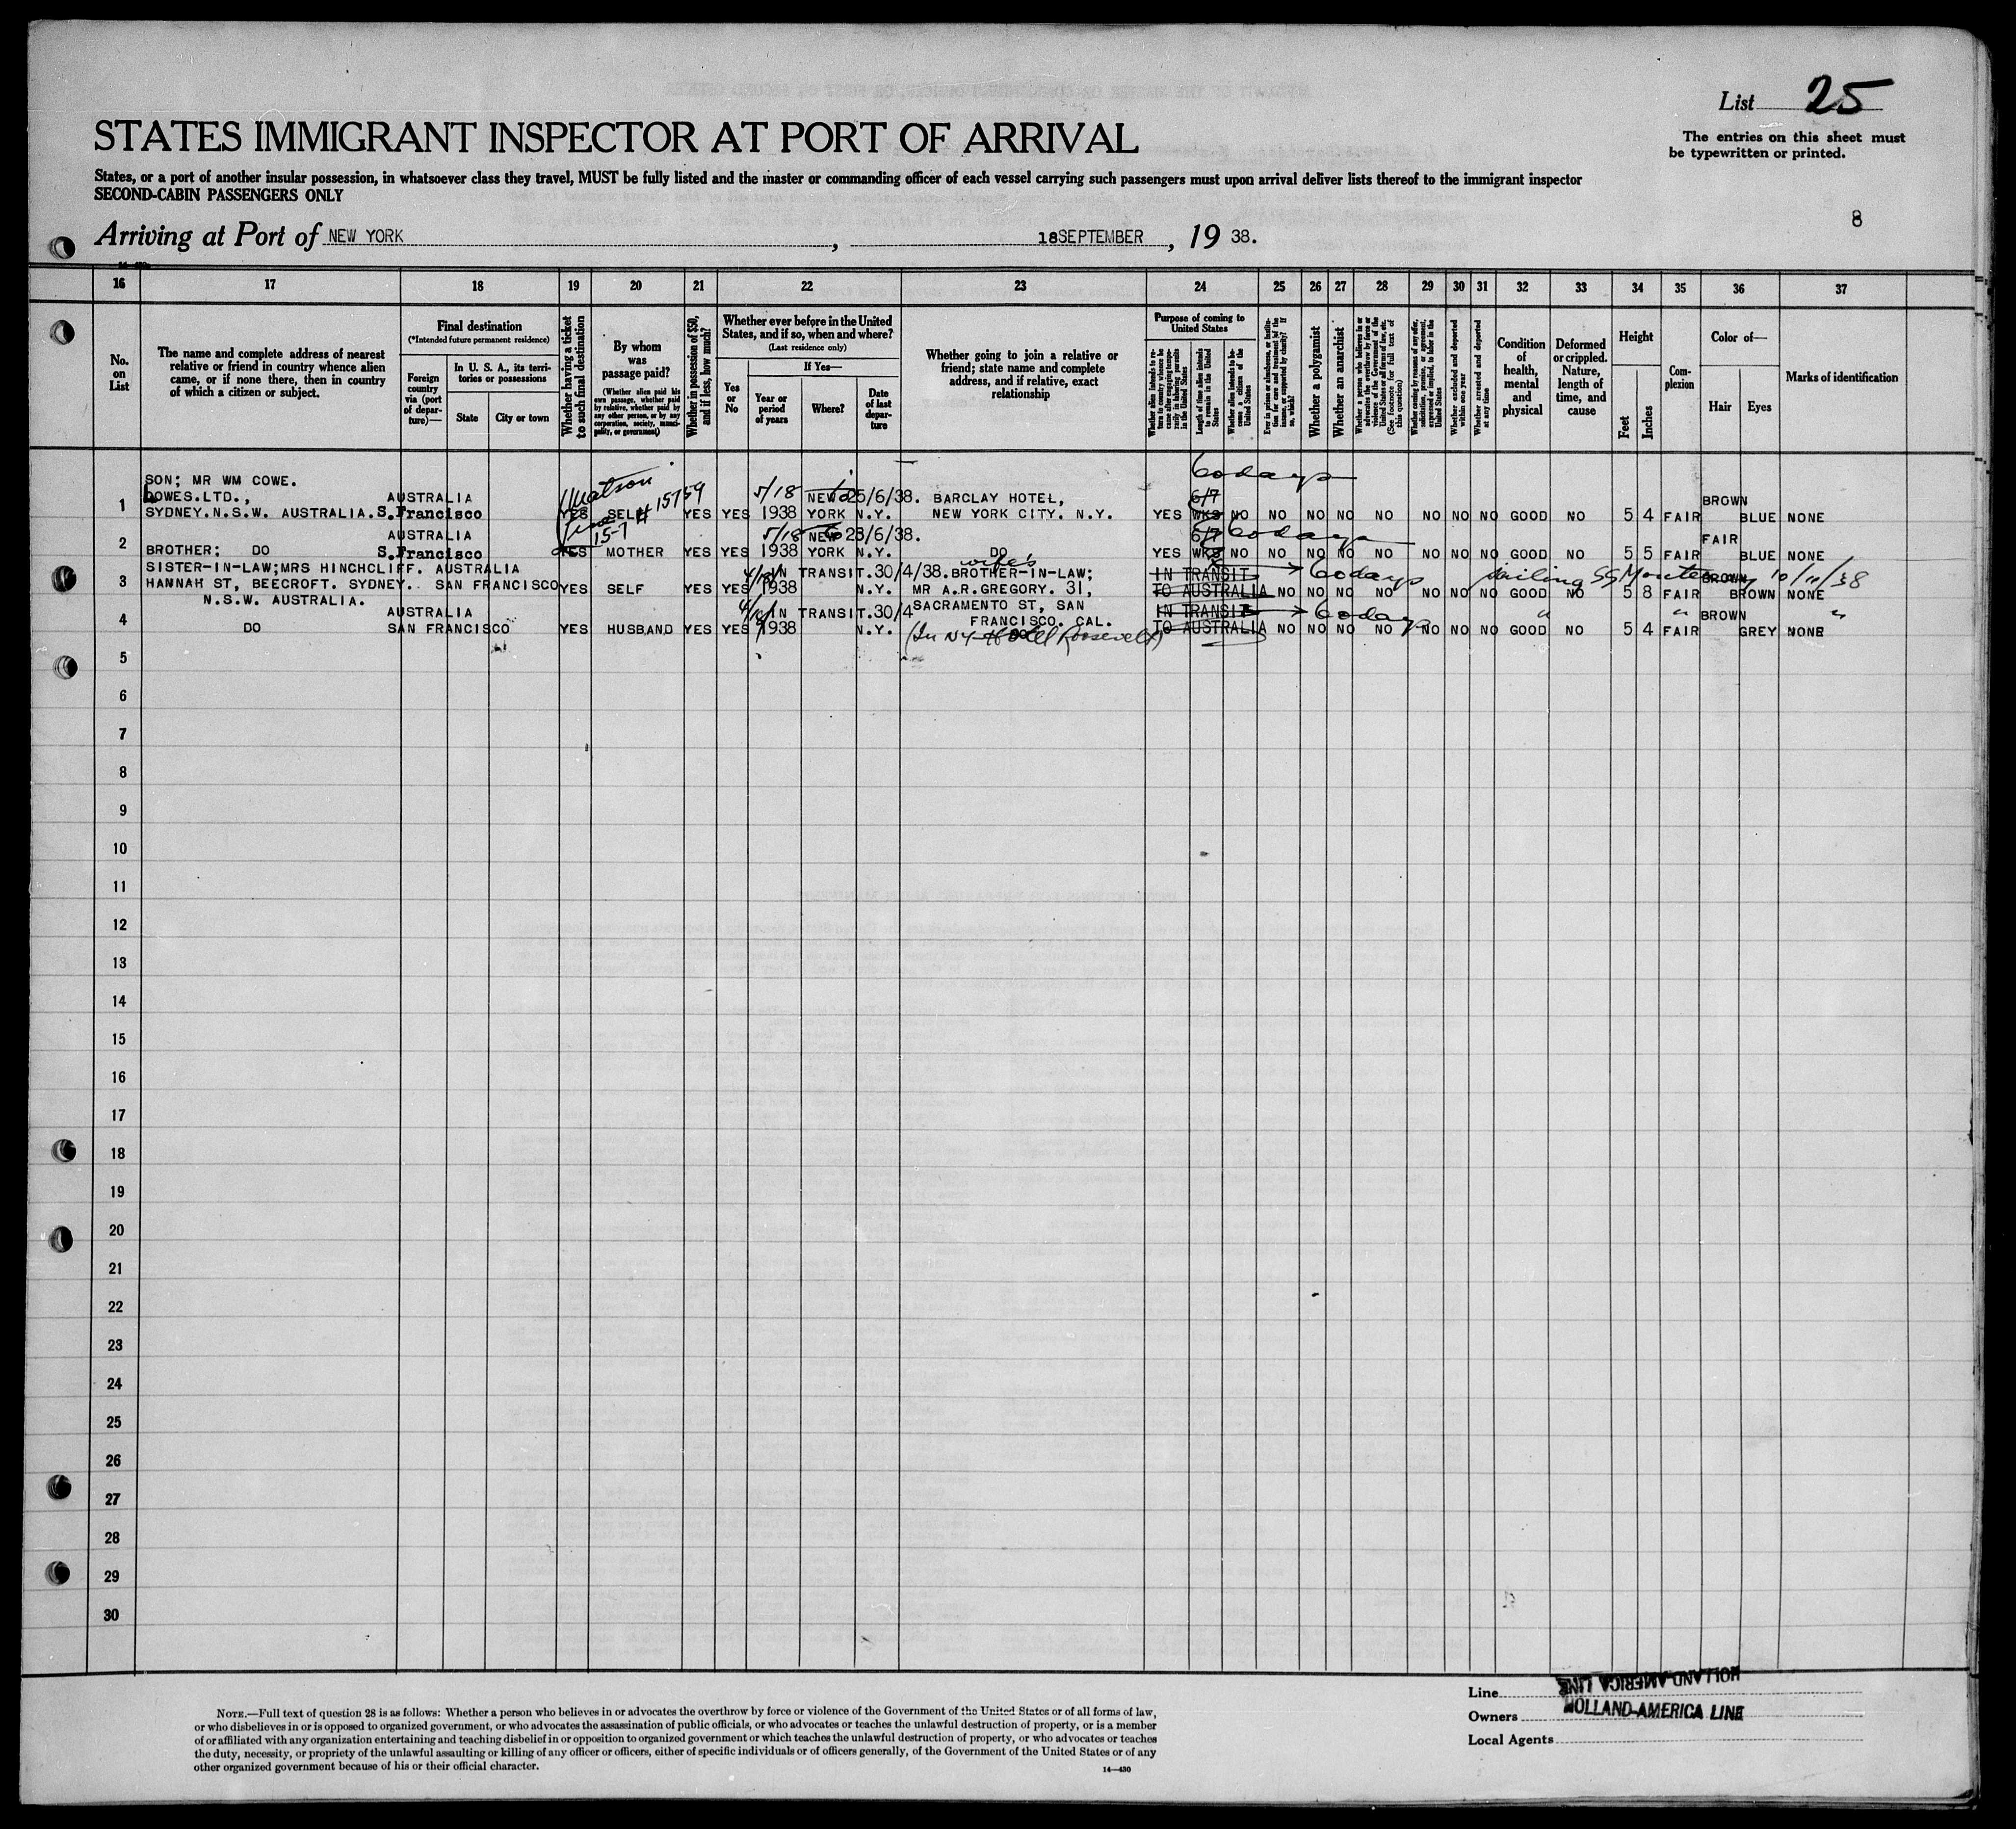 List 25
The entries on this sheet must
be typewritten or printed.
STATES IMMIGRANT INSPECTOR AT PORT OF ARRIVAL
States, or a port of another insular possession, in whatsoever class they travel, MUST be fully listed and the master or commanding officer of each vessel carrying such passengers must upon arrival deliver lists thereof to the immigrant inspector
SECOND-CABIN PASSENGERS ONLY
8
Arriving at Port of NEW YORK, 18 SEPTEMBER, 19 38.
16 17 18 19 20 21 22 23 24 25 26 27 28 29 30 31 32 33 34 35 36 37
No. on List
The name and complete address of nearest relative or friend in country whence alien came, or if none there, then in country of which a citizen or subject.
Final destination
(*Intended future permanent residence)
Foreign country via (port of departure)—
In U. S. A., its territories or possessions
State
City or town
Whether having a ticket to such final destination
By whom was passage paid?
(Whether alien paid his own passage, whether paid by relative, whether paid by any other person, or by any corporation, society, municipality, or government)
Whether in possession of $50, and if less, how much?
Whether ever before in the United States, and if so, when and where?
(Last residence only)
Yes or No
If Yes—
Year or period of years
Where?
Date of last departure
Whether going to join a relative or friend; state name and complete address, and if relative, exact relationship
Purpose of coming to United States
Whether alien intends to return to country whence he came after engaging temporarily in laboring pursuits in the United States
Length of time alien intends to remain in the United States
Whether alien intends to become a citizen of the United States
Ever in prison or almshouse, or institution for care and treatment of the insane, or supported by charity? If so, which?
Whether a polygamist
Whether an anarchist
Whether a person who believes in or advocates the overthrow by force or violence of the Government of the United States or all forms of law, etc. (See footnote for full text of this question)
Whether coming by reason of any offer, solicitation, promise, or agreement, expressed or implied, to labor in the United States
Whether excluded and deported within one year
Whether arrested and deported at any time
Condition of health, mental and physical
Deformed or crippled. Nature, length of time, and cause
Height
Feet
Inches
Complexion
Color of—
Hair
Eyes
Marks of identification
SON; MR WM COWE. 60 days
Matson # 15759
1 AUSTRALIA 5/18 NEW 25/6/38. BARCLAY HOTEL, 6/7 BROWN
SYDNEY. N.S.W. AUSTRALIA. S. Francisco YES SELF YES YES 1938 YORK N.Y. NEW YORK CITY. N.Y. YES WKS NO NO NO NO NO NO NO NO GOOD NO 5 4 FAIR BLUE NONE
2 AUSTRALIA 15-7 5/18 NEW 23/6/38. 6/7 60 days FAIR
BROTHER; DO S. Francisco YES MOTHER YES YES 1938 YORK N.Y. DO YES WKS NO NO NO NO NO NO NO NO GOOD NO 5 5 FAIR BLUE NONE
wife's
SISTER-IN-LAW; MRS HINCHCLIFF. AUSTRALIA IN TRANSIT. 30/4/38. BROTHER-IN-LAW; IN TRANSIT 60 days sailing SS Monterey 10/11/38 BROWN
3 HANNAH ST, BEECROFT. SYDNEY. SAN FRANCISCO YES SELF YES YES 1938 N.Y. MR A.R. GREGORY. 31, TO AUSTRALIA NO NO NO NO NO NO NO GOOD NO 5 8 FAIR BROWN NONE
N.S.W. AUSTRALIA.
4 AUSTRALIA IN TRANSIT. 30/4 SACRAMENTO ST, SAN IN TRANSIT 60 days " " BROWN "
DO SAN FRANCISCO YES HUSBAND YES YES 1938 N.Y. FRANCISCO. CAL. TO AUSTRALIA NO NO NO NO NO NO NO GOOD NO 5 4 FAIR GREY NONE
(In NY Hotel Roosevelt)
5
6
7
8
9
10
11
12
13
14
15
16
17
18
19
20
21
22
23
24
25
26
27
28
29
30
NOTE.—Full text of question 28 is as follows: Whether a person who believes in or advocates the overthrow by force or violence of the Government of the United States or of all forms of law,
or who disbelieves in or is opposed to organized government, or who advocates the assassination of public officials, or who advocates or teaches the unlawful destruction of property, or is a member
of or affiliated with any organization entertaining and teaching disbelief in or opposition to organized government or which teaches the unlawful destruction of property, or who advocates or teaches
the duty, necessity, or propriety of the unlawful assaulting or killing of any officer or officers, either of specific individuals or of officers generally, of the Government of the United States or of any
other organized government because of his or their official character.
14—430
Line HOLLAND-AMERICA LINE
Owners HOLLAND-AMERICA LINE
Local Agents